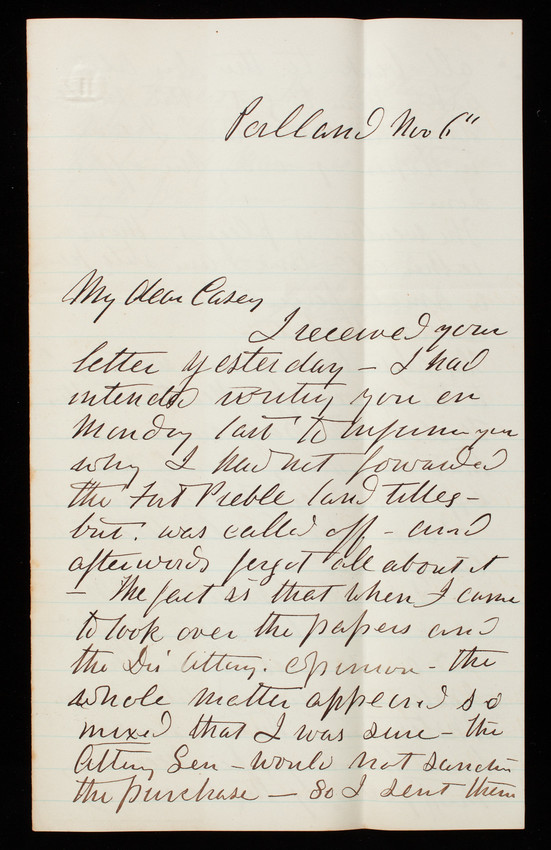 Portland Nov 6"
My dear Casey
I received your
letter yesterday – I had
intended writing you on
Monday last to inform you
why I had not forwarded
the Fort Preble land titles –
but was called off – and
afterwords forgot all about it
– The fact is that when I came
to look over the papers and
the Dis Attny. opinion – the
whole matter appeared so
mixed that I was sure – the
Attny Gen – would not sanction
the purchase – so I sent them